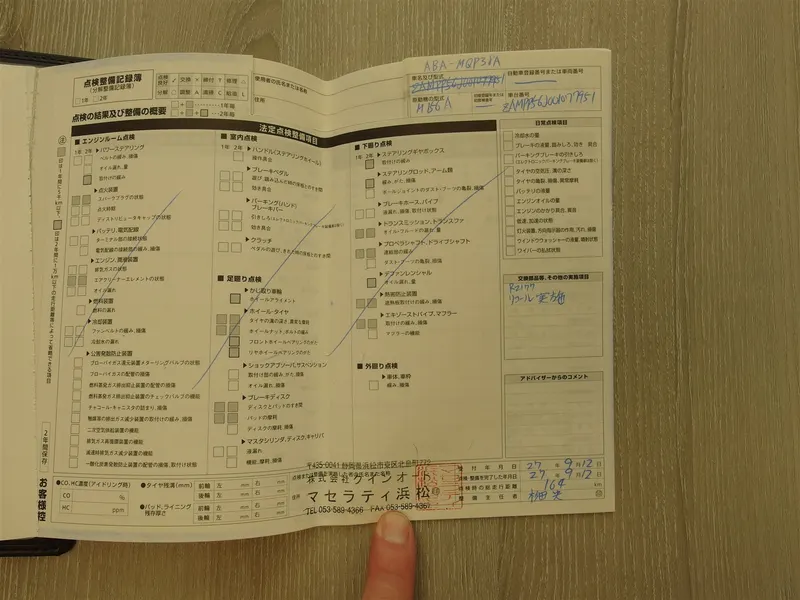 点検整備記録簿
(分解整備記録簿)
1年 2年
点検良好 ✓ 交換 × 締付 T 修理 △
分解 ○ 調整 A 清掃 C 給油 L
使用者の氏名または名称
住所
ABA-MQP38A
車名及び型式
自動車登録番号または車両番号
原動機の型式
M156A
車台番号
点検の結果及び整備の概要
1年毎
2年毎
法定点検整備項目
■ エンジンルーム点検
1年 2年
▶パワーステアリング
ベルトの緩み、損傷
オイル漏れ、量
取付けの緩み
▶点火装置
スパークプラグの状態
点火時期
ディストリビュータキャップの状態
▶バッテリ、電気配線
ターミナル部の接続状態
電気配線の接続部の緩み、損傷
▶エンジン、燃料装置
排気ガスの状態
エアクリーナーエレメントの状態
オイル漏れ
▶燃料装置
燃料の漏れ
▶冷却装置
ファンベルトの緩み、損傷
冷却水の漏れ
▶公害発散防止装置
ブローバイガス還元装置メターリングバルブの状態
ブローバイガスの配管の損傷
燃料蒸発ガス排出抑止装置の配管の損傷
燃料蒸発ガス排出抑止装置のチェックバルブの機能
チャコール・キャニスタの詰まり、損傷
触媒等の排出ガス減少装置の取付けの緩み、損傷
二次空気供給装置の機能
排気ガス再循環装置の機能
減速時排気ガス減少装置の機能
一酸化炭素発散防止装置の配管の損傷、取付け状態
■ 室内点検
1年 2年
▶ハンドル(ステアリングホイール)
操作具合
▶ブレーキペダル
遊び、踏み込んだ時の床板とのすき間
効き具合
▶パーキング(ハンド)
ブレーキレバー
引きしろ
効き具合
▶クラッチ
ペダルの遊び、きれた時の床板とのすき間
■ 足廻り点検
▶かじ取り車輪
ホイールアライメント
▶ホイール・タイヤ
タイヤの溝の深さ、異常な摩耗
ホイールナット、ボルトの緩み
フロントホイールベアリングのがた
リヤホイールベアリングのがた
▶ショックアブソーバ、サスペンション
取付け部の緩み、がた、損傷
オイル漏れ、損傷
▶ブレーキディスク
ディスクとパッドのすき間
パッドの摩耗
ディスクの摩耗、損傷
▶マスタシリンダ、ディスク、キャリパ
液漏れ
機能、摩耗、損傷
■ 下廻り点検
1年 2年
▶ステアリングギヤボックス
取付けの緩み
▶ステアリングロッド、アーム類
緩み、がた、損傷
ボールジョイントのダスト・ブーツの亀裂、損傷
▶ブレーキホース、パイプ
液漏れ、損傷、取付け状態
▶トランスミッション、トランスファ
オイル・フルードの漏れ、量
▶プロペラシャフト、ドライブシャフト
連結部の緩み
ダスト・ブーツの亀裂、損傷
▶デファレンシャル
オイル漏れ、量
▶熱害防止装置
遮熱板取付けの緩み、損傷
▶エキゾーストパイプ、マフラー
取付けの緩み、損傷
マフラーの機能
■ 外廻り点検
▶車体、車枠
緩み、損傷
日常点検項目
冷却水の量
ブレーキの液量、踏みしろ、効き具合
パーキングブレーキの引きしろ
タイヤの空気圧、溝の深さ
タイヤの亀裂、損傷、異常摩耗
バッテリの液量
エンジンオイルの量
エンジンのかかり具合、異音
低速、加速の状態
灯火装置、方向指示器の作用、汚れ、損傷
ウインドウウォッシャーの液量、噴射状態
ワイパーの払拭状態
交換部品等、その他の実施項目
リコール実施
アドバイザーからのコメント
2年間保存
お客様控
●CO、HC濃度(アイドリング時)
CO %
HC ppm
●タイヤ残溝(mm)
前輪 左 mm 右 mm
後輪 左 mm 右 mm
●パッド、ライニング残存厚さ
前輪 左 mm 右 mm
後輪 左 mm 右 mm
株式会社クインオート
マセラティ浜松
TEL 053-589-4366 FAX 053-589-4367
受付年月日 27年 9月 12日
点検・整備を完了した年月日 27年 9月 12日
点検時の総走行距離 164 km
整備主任者